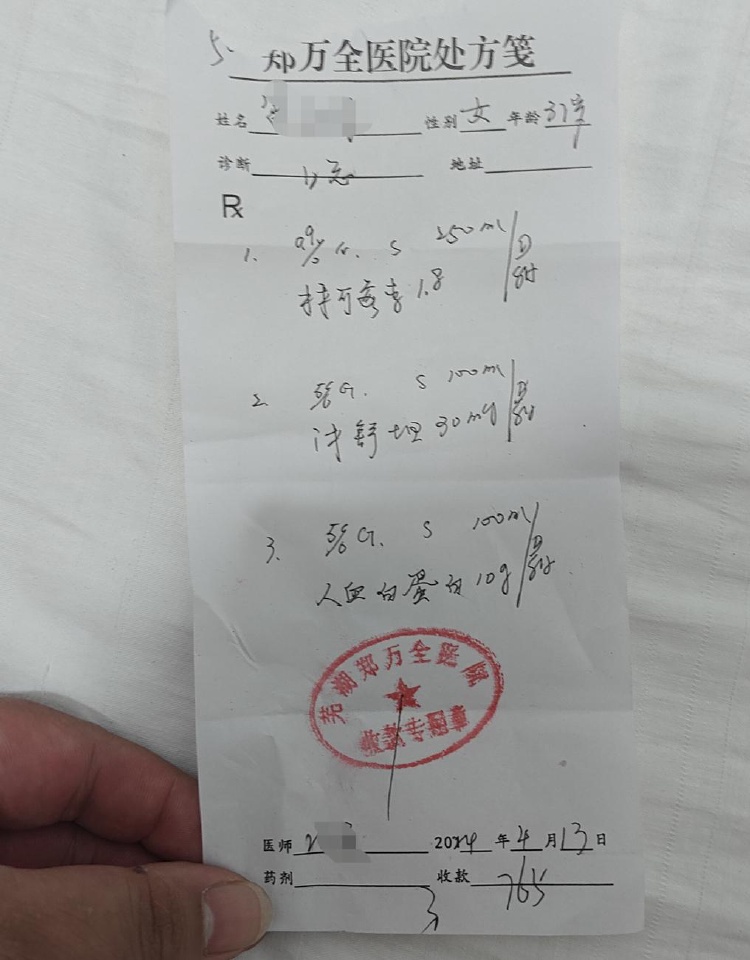 5.
郑万全医院处方笺
姓名 性别 女 年龄 37岁
诊断 地址
Rx
1. 0.9% N. S 250ml
1.8
2. 5% G. S 100ml
沐舒坦 30mg
3. 5% G. S 100ml
人血白蛋白 10g
芜湖郑万全医院
收款专用章
医师 2024 年 4 月 13 日
药剂 收款 765